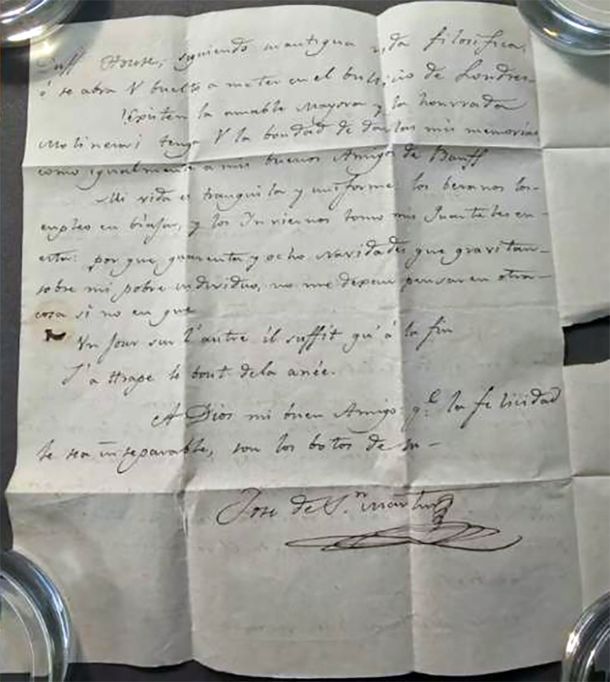 Duff House, siguiendo su antigua vida filosófica,
ó se abra V buelto a meter en el bullicio de Londres.
Existen la amable Mayora y la honrrada
Molinera? tenga V la bondad de darlas mis memorias
como igualmente a mis buenos Amigos de Banff
Mi vida es tranquila y uniforme: los beranos los-
empleo en biajar, y los Inviernos tomo mis Quarteles en-
esta: por que quarenta y ocho Navidades que gravitan-
sobre mi pobre individuo, no me dexan pensar en otra-
cosa si no en que
Un Jour sur l'autre il suffit qu'á la fin
J'attrape le bout de la anée.
A Dios mi buen Amigo q.e la felicidad
le sea inseparable, son los botos de su-
Jose de S.n Martin